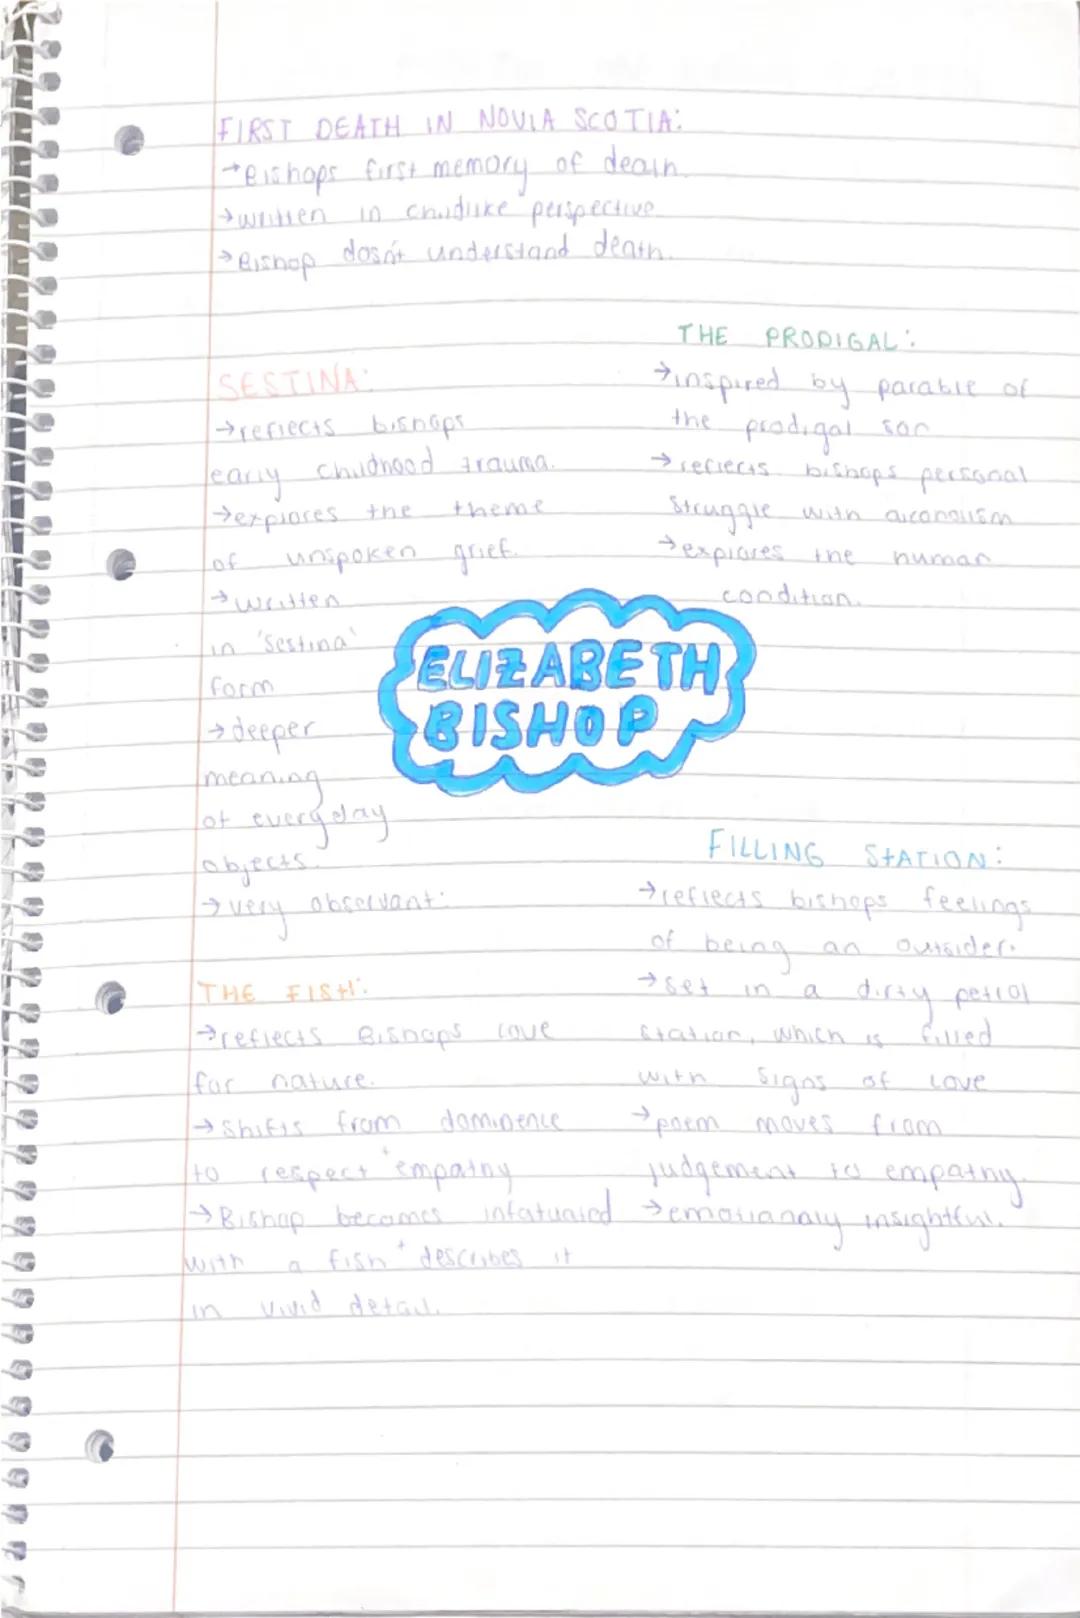 FIRST DEATH IN NOVIA SCOTIA:
→Bishops first memory of death.
→written in childlike perspective
→Bishop dosn't understand death.
SESTINA:
→reflects bishops
early childhood trauma.
→explores the theme
of unspoken grief.
→written
in 'sestina'
form
→deeper
meaning
of everyday
objects.
→very observant.
THE PRODIGAL:
→inspired by parable of
the prodigal son
→reflects bishops personal
struggle with alcoholism
→explores the human
condition.
ELIZABETH
BISHOP
THE FISH:
→reflects Bishops love
for nature.
→shifts from dominence
to respect + empathy
→Bishop becomes infatuated
with a fish + describes it
in vivid detail.
FILLING STATION:
→reflects bishops feelings
of being an outsider.
→set in a dirty petrol
station, which is filled
with signs of love
→poem moves from
judgement to empathy.
→emotionaly insightful.